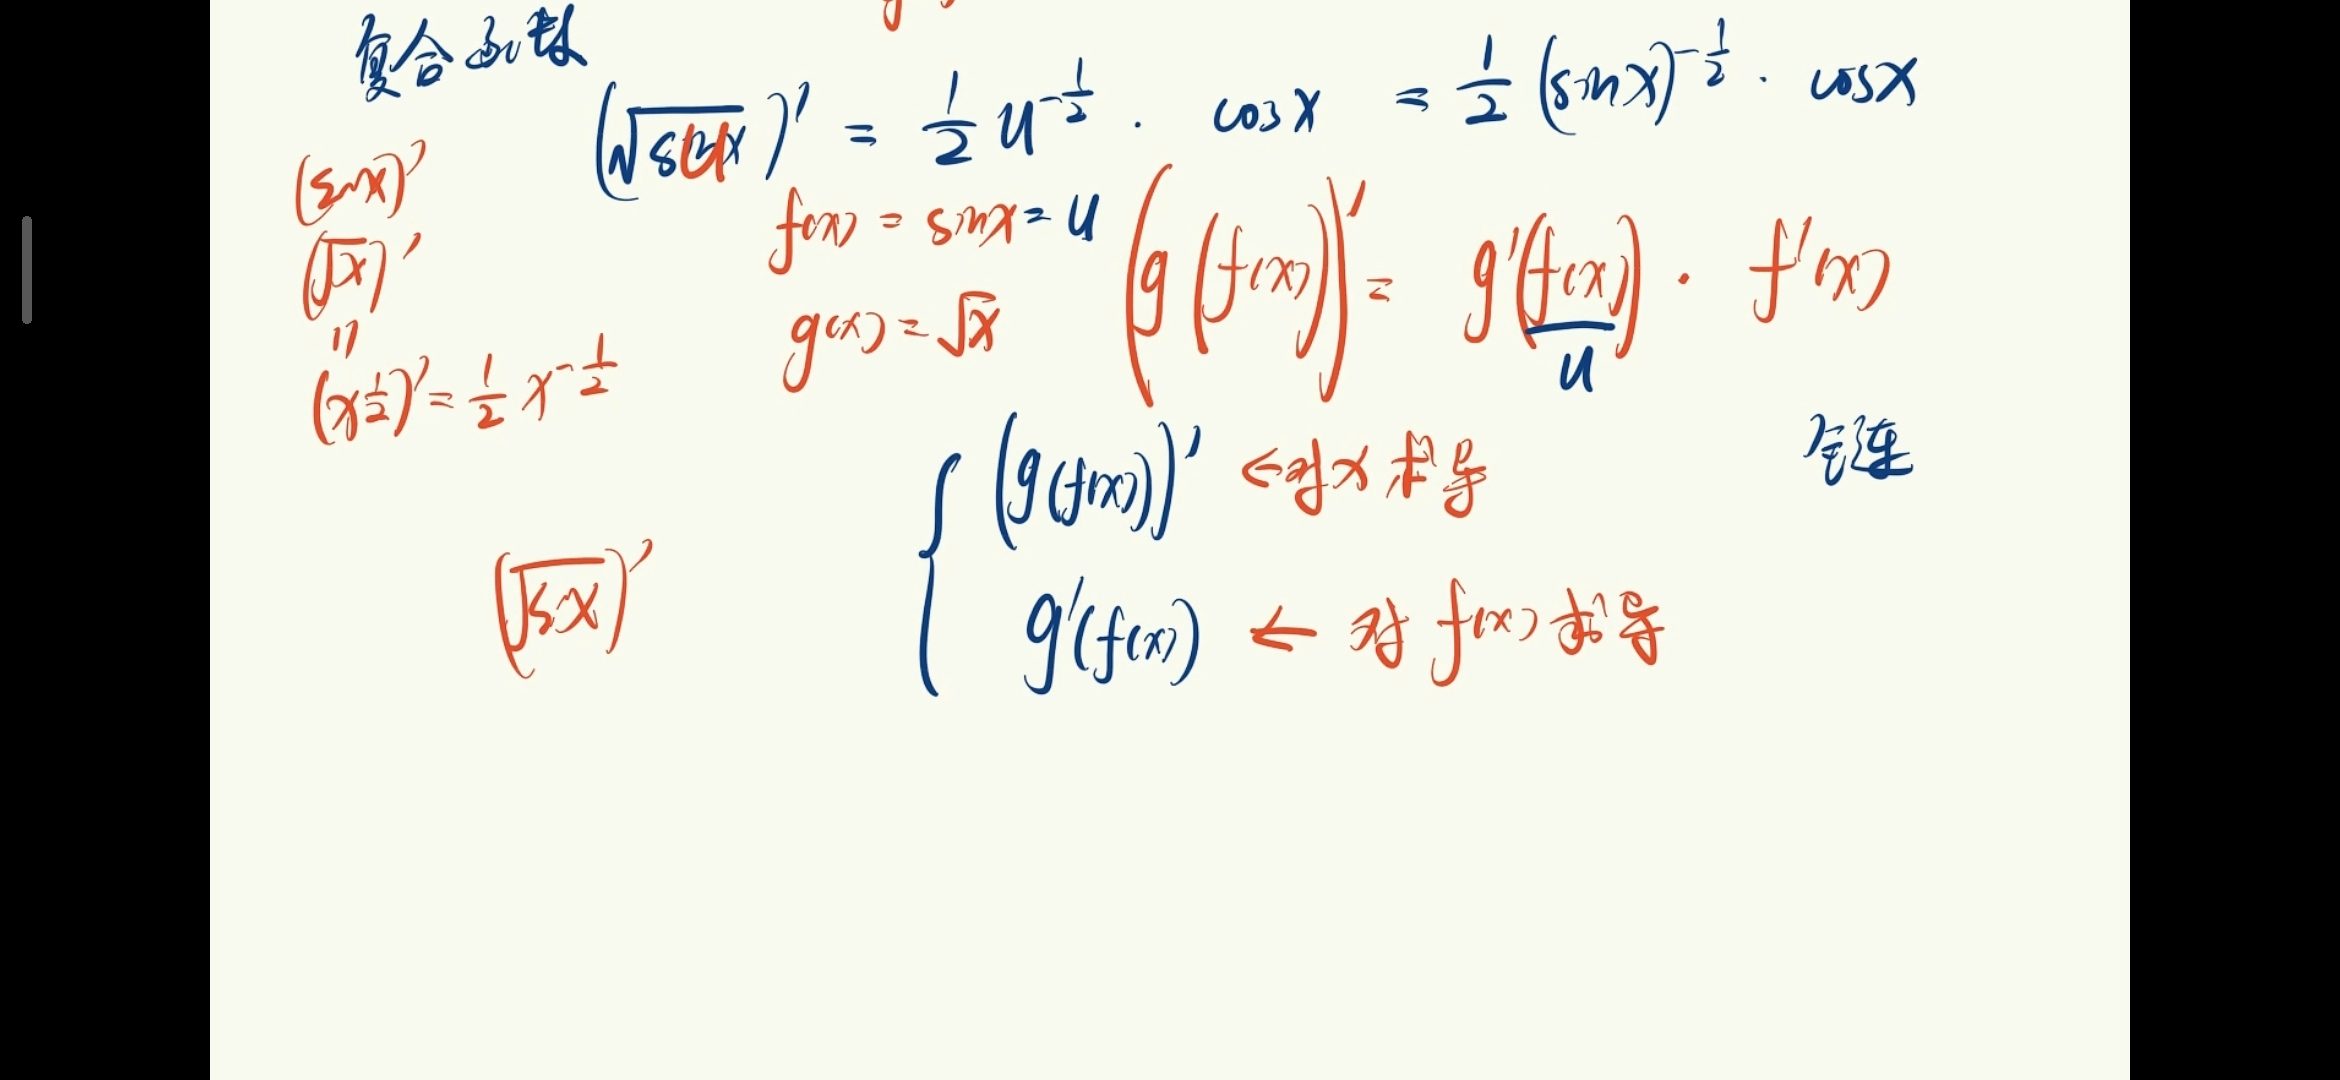 复合函数
(√sinx)' = 1/2 u^(-1/2) · cosx = 1/2 (sinx)^(-1/2) · cosx
u
(sinx)'
(√x)'
=
(x^(1/2))' = 1/2 x^(-1/2)
f(x) = sinx = u
g(x) = √x
(g(f(x)))' = g'(f(x)) · f'(x)
u
(g(f(x)))' ← 对x求导
g'(f(x)) ← 对f(x)求导
(√5x)'